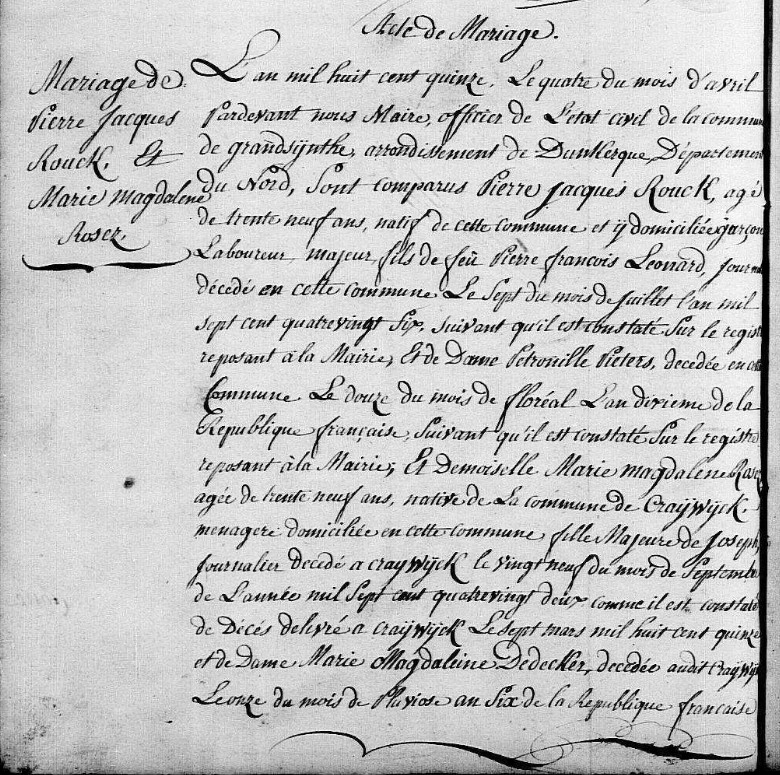 Acte de Mariage.
Mariage de
Pierre Jacques
Rouck, Et
Marie magdalene
Rosez,
L'an mil huit cent quinze, Le quatre du mois d'avril
Pardevant nous Maire, officier de L'état civil de la commun
de grandsijnthe, arrondissement de Dunkerque, Département
du Nord, Sont comparus Pierre Jacques Rouck, agé
de trente neuf ans, natif de cette commune et ij domiciliée garçon
Laboureur, majeur, fils de feü Pierre françois Leonard, Journa
décédé en cette commune Le Sept du mois de Juillet l'an mil
sept cent quatrevingt Six, suivant qu'il est constaté Sur le regist
reposant à la Mairie, Et de Dame Petronille Pieters, decedée en cette
Commune Le douze du mois de floréal L'an dixieme de la
République française, Suivant qu'il est constaté Sur le registre
reposant à la Mairie; Et Demoiselle Marie magdalene Rosez
agée de trente neuf ans, native de La commune de Craijwijck,
menagere domiciliée en cette commune fille Majeure de Joseph,
Journalier décédé a craijwijck le vingt neuf du mois de Septembre
de L'année mil Sept cent quatrevingt deux comme il est constaté
de Décés delivré a craijwijck Le sept mars mil huit cent quinze
et de Dame Marie Magdaleine Dedecker, decedée audit Craijwijck
Le onze du mois de Pluviose an Six de la Republique française